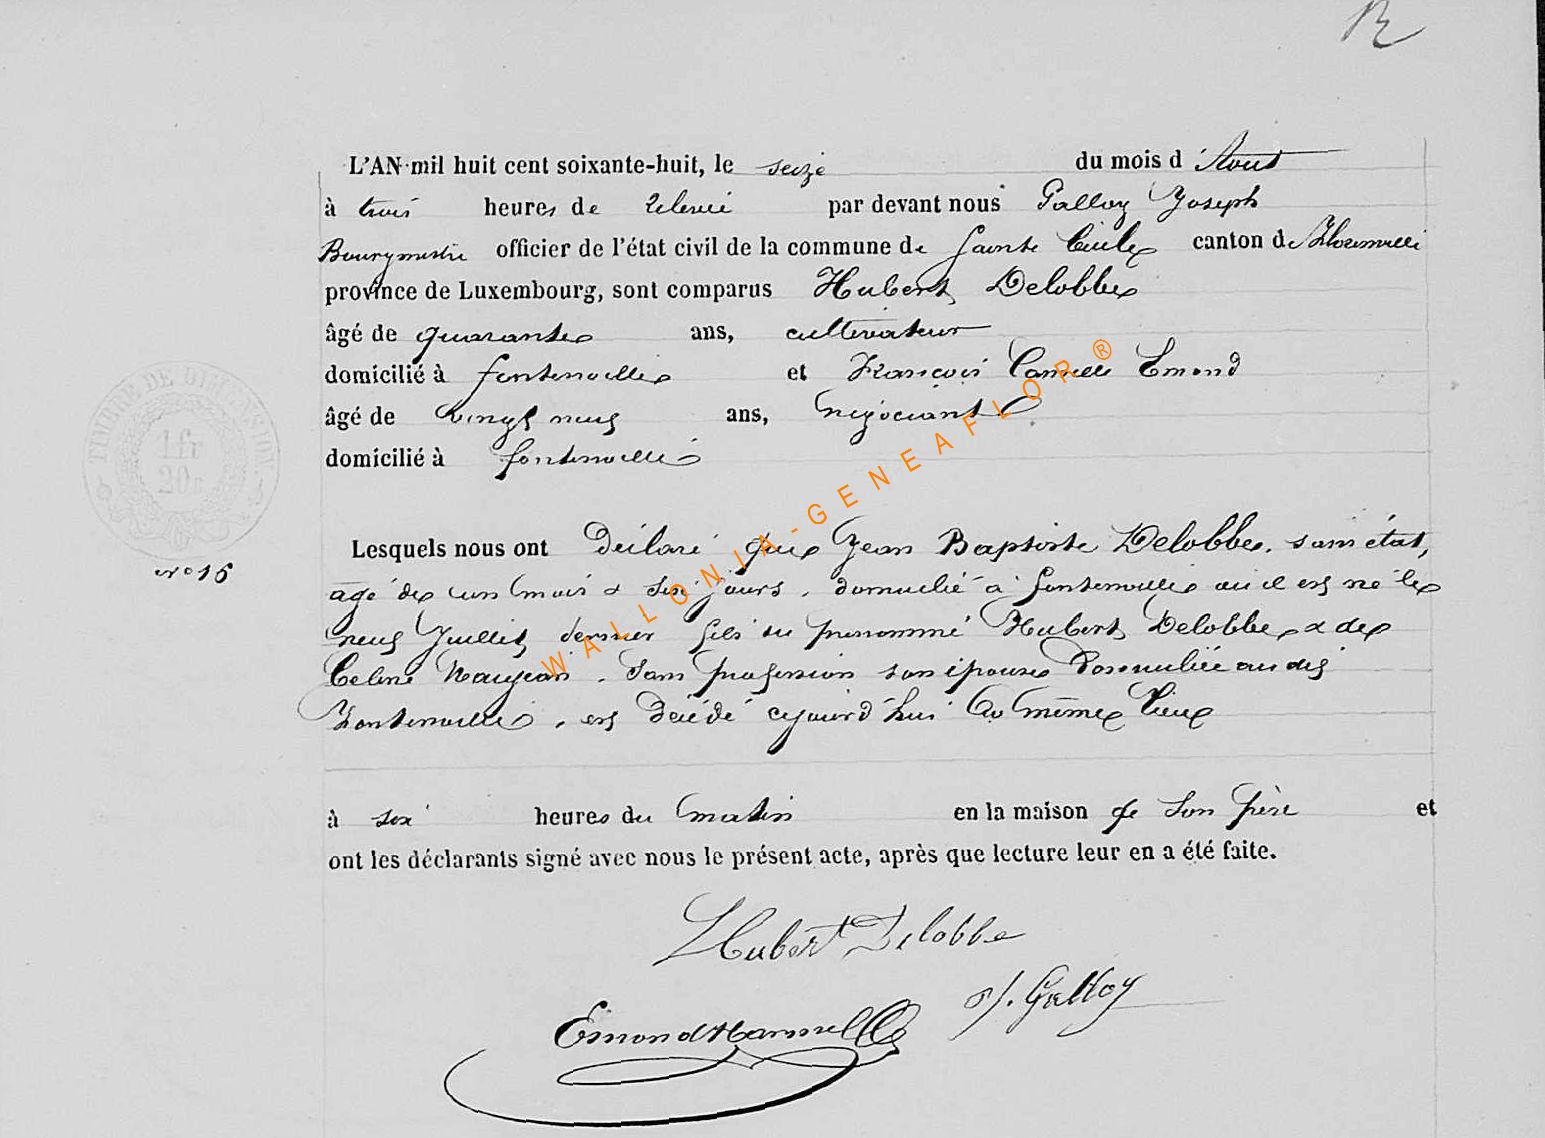 L'AN mil huit cent soixante-huit, le seize du mois d'Aout
à trois heures de relevée par devant nous Galloy Joseph
Bourgmestre officier de l'état civil de la commune de Sainte Cécile canton de Florenville
province de Luxembourg, sont comparus Hubert Delobbe
âgé de quarante ans, cultivateur
domicilié à fontenoille et François Camille Emond
âgé de vingt neuf ans, négociant
domicilié à fontenoille
Lesquels nous ont déclaré que Jean Baptiste Delobbe, sans état,
agé de un mois & six jours, domicilié à fontenoille où il est né le
neuf Juillet dernier fils du prénommé Hubert Delobbe & de
Celine Naujean, sans profession son épouse domiciliée audit
Fontenoille, est décédé aujourd'hui au même lieu
à six heures du matin en la maison de son père et
ont les déclarants signé avec nous le présent acte, après que lecture leur en a été faite.
TIMBRE DE DIMENSION
1 fr
20 c
n° 15
Hubert Delobbe
J. Galloy
Emond
WALLONIA-GENEAFLOR®